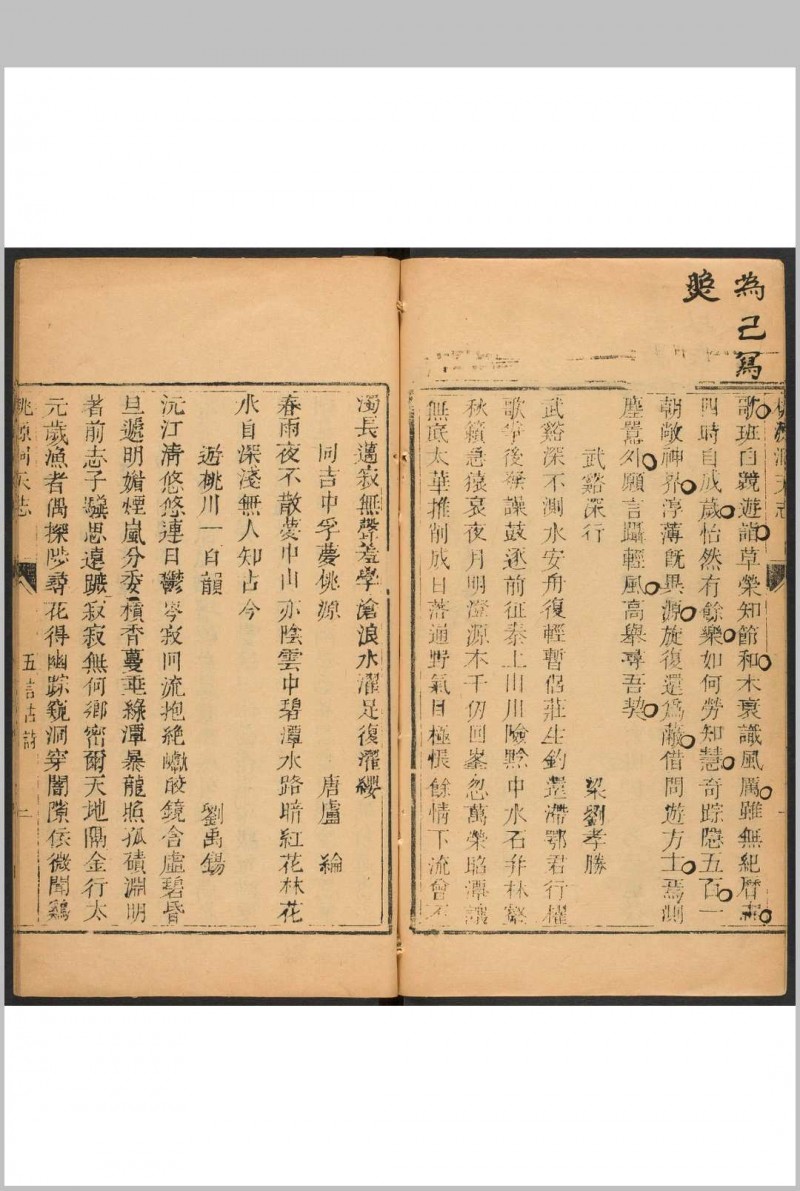 為己寫
歌班白歡遊詣草榮知節和木衰識風厲雖無紀曆志
四時自成歲怡然有餘樂如何勞知慧奇踪隱五百一
朝敞神界淳薄旣異源旋復還為蔽借問遊方士焉測
塵囂外願言躡輕風高舉尋吾契
武谿深行
梁劉孝勝
武谿深不測水安舟復輕暫侶莊生釣還滯鄂君行櫂
歌爭後噪鼓逐前征秦上山川險黔中水石并林壑
秋籟急猿哀夜月明澄源本千仞回峯忽萬縈昭潭讓
無底太華推削成日落通野氣目極悵餘情下流會不
濁長邁寂無聲羞學滄浪水濯足復濯纓
同吉中孚夢桃源
唐盧綸
春雨夜不散夢中山亦陰雲中碧潭水路暗紅花林花
水自深淺無人知古今
遊桃川一百韻
劉禹錫
沅江清悠悠連日鬱岑寂回流抱絶巘皎鏡含虛碧昏
旦遞明媚煙嵐分委積香蔓垂綠潭暴龍照孤磧淵明
著前志子驥思遠蹠寂寂無何鄉密爾天地隔金行太
元歲漁者偶探陟尋花得幽踪窺洞穿闇隙依微聞鷄
桃源洞天志
五言古詩
一